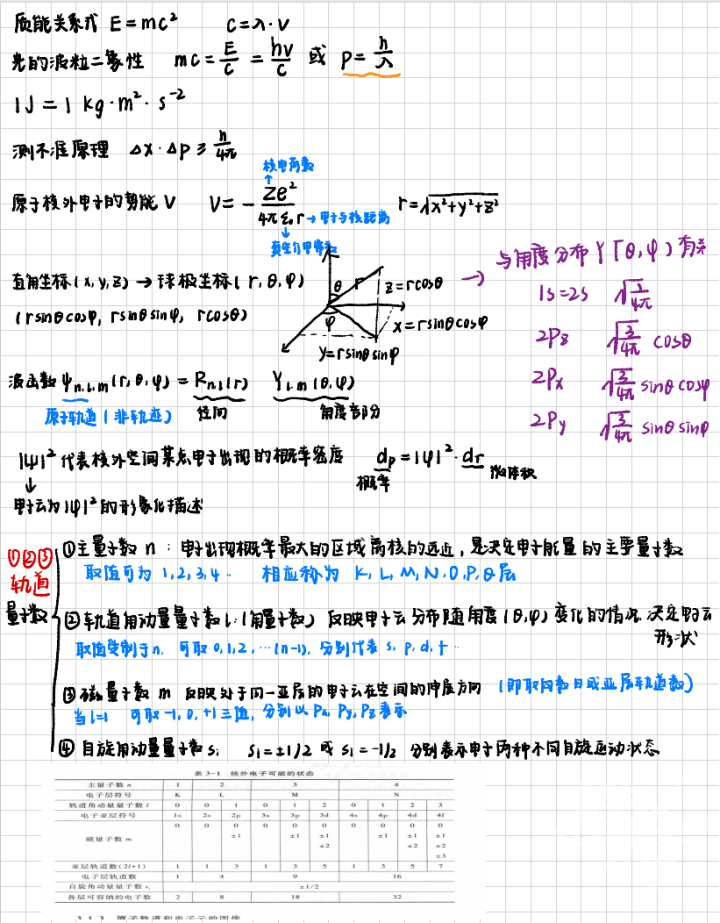 质能关系式 E=mc² C=λ·ν
光的波粒二象性 mc=E/c=hν/c 或 p=h/λ
1J=1 kg·m²·s⁻²
测不准原理 Δx·Δp≥h/4π
核电荷数
原子核外电子的势能V V=-Ze²/4πε₀r→电子与核距离 r=√x²+y²+z²
真空介电常数
直角坐标(x,y,z)→球极坐标(r,θ,φ)
(rsinθcosφ, rsinθsinφ, rcosθ)
θ r z=rcosθ
φ x=rsinθcosφ
y=rsinθsinφ
→ 与角度分布Y(θ,φ)有关
1s=2s √1/4π
2Pz √3/4π cosθ
2Px √3/4π sinθcosφ
2Py √3/4π sinθsinφ
波函数ψn.l.m(r,θ,φ)=Rn.l(r) Yl.m(θ,φ)
原子轨道(非轨迹) 径向 角度部分
|ψ|²代表核外空间某点电子出现的概率密度 dp=|ψ|²·dτ 微体积
概率
电子云为|ψ|²的形象化描述
①②③
轨道
量子数
①主量子数n:电子出现概率最大的区域离核的远近,是决定电子能量的主要量子数
取值可为1,2,3,4·· 相应称为 K,L,M,N,O,P,Q层
②轨道角动量量子数l:(角量子数)反映电子云分布随角度(θ,φ)变化的情况.决定电子云
形状
取值受制于n. 可取0,1,2,···(n-1),分别代表s,p,d,f··
③磁量子数m 反映处于同一亚层的电子云在空间的伸展方向 (即取向数目或亚层轨道数)
当l=1 可取-1,0,+1三值,分别以Px,Py,Pz表示
④自旋角动量量子数si si=±1/2 或 si=-1/2 分别表示电子两种不同自旋运动状态
表3-1 核外电子可能的状态
主量子数n 1 2 3 4
电子层符号 K L M N
轨道角动量量子数l 0 0 1 0 1 2 0 1 2 3
电子亚层符号 1s 2s 2p 3s 3p 3d 4s 4p 4d 4f
磁量子数m 0 0 0 0 0 0 0 0 0 0
±1 ±1 ±1 ±1 ±1 ±1
±2 ±2 ±2
±3
亚层轨道数(2l+1) 1 1 3 1 3 5 1 3 5 7
电子层轨道数 1 4 9 16
自旋角动量量子数si ±1/2
各层可容纳的电子数 2 8 18 32